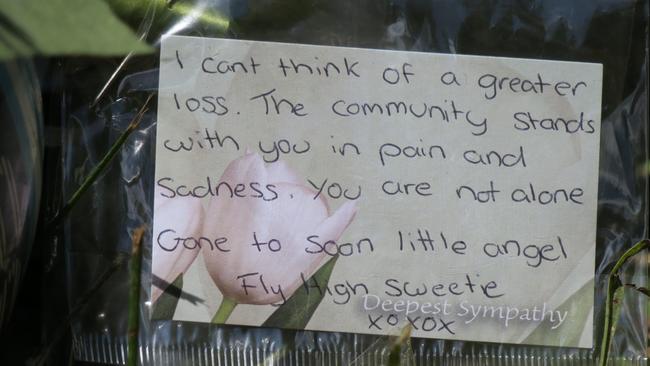 I cant think of a greater
loss. The community stands
with you in pain and
sadness. You are not alone
Gone to soon little angel
Fly High sweetie
Deepest Sympathy
xoxox